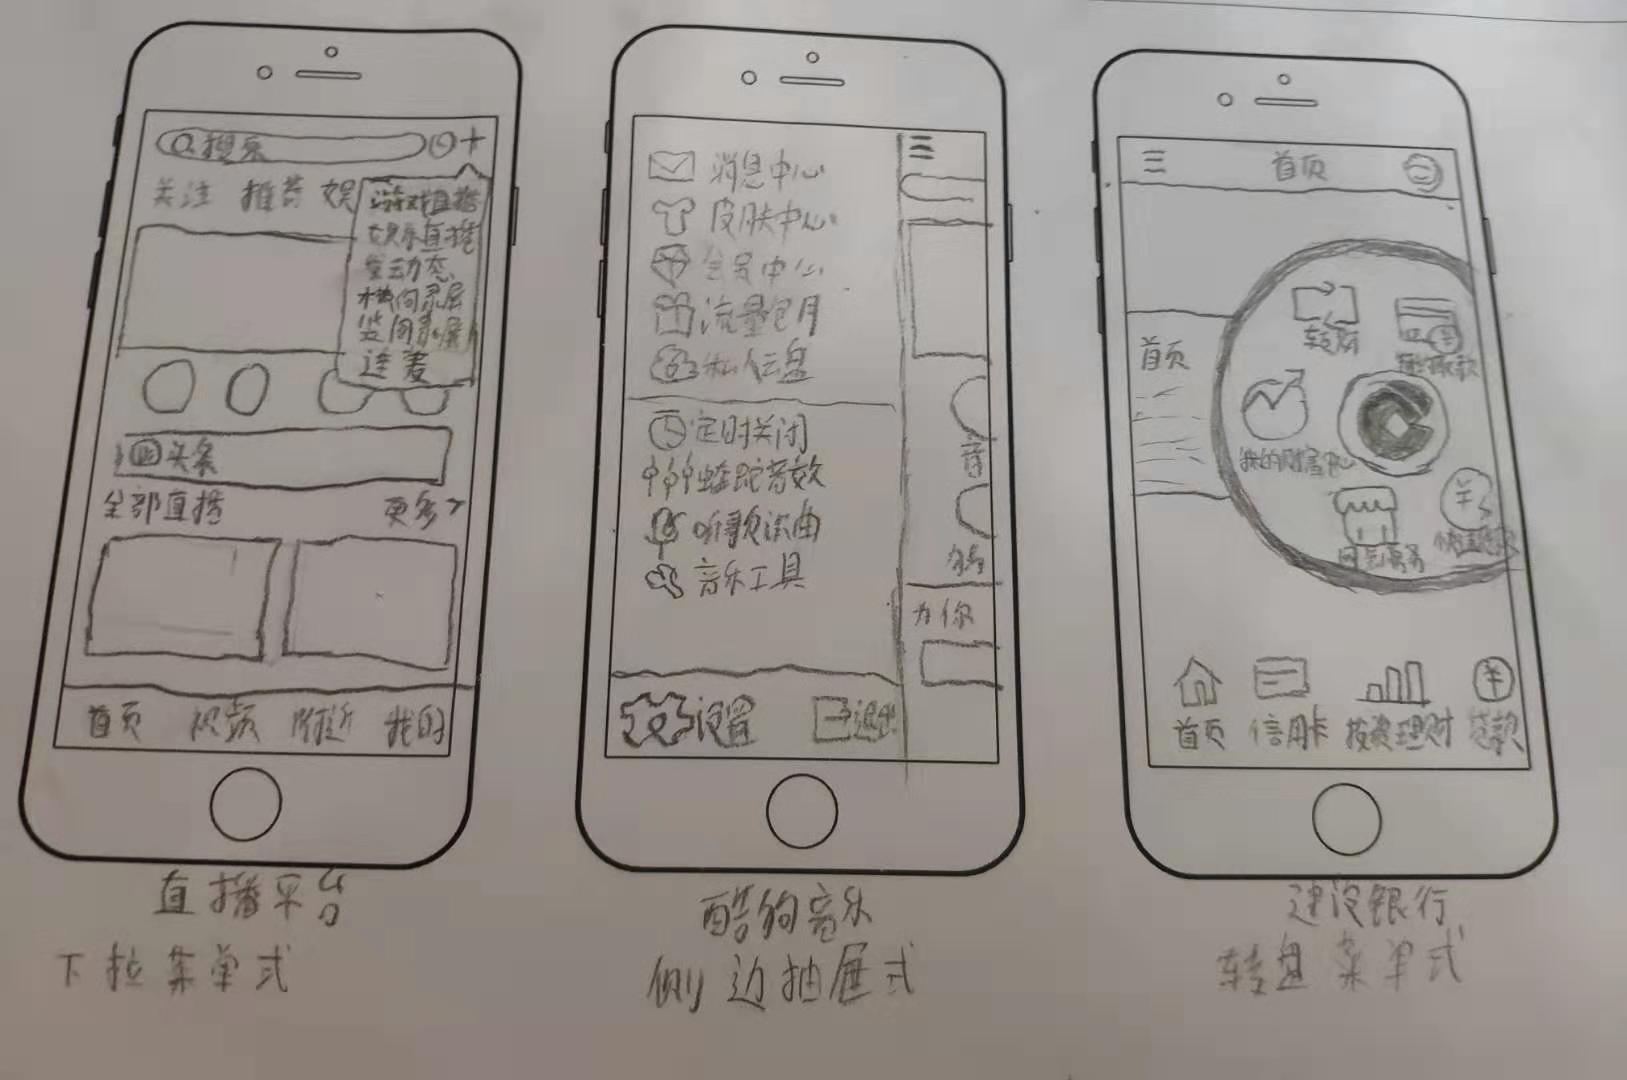 搜索
关注 推荐 娱
游戏直播
娱乐直播
发动态
横向录屏
竖向录屏
连麦
头条
全部直播 更多>
首页 视频 附近 我的
直播平台
下拉菜单式
消息中心
皮肤中心
会员中心
流量包月
私人云盘
定时关闭
蝰蛇音效
听歌识曲
音乐工具
设置 退出
为你
酷狗音乐
侧边抽屉式
首页
首页
转账
我的财富中心
首页 信用卡 投资理财 贷款
建设银行
转盘菜单式